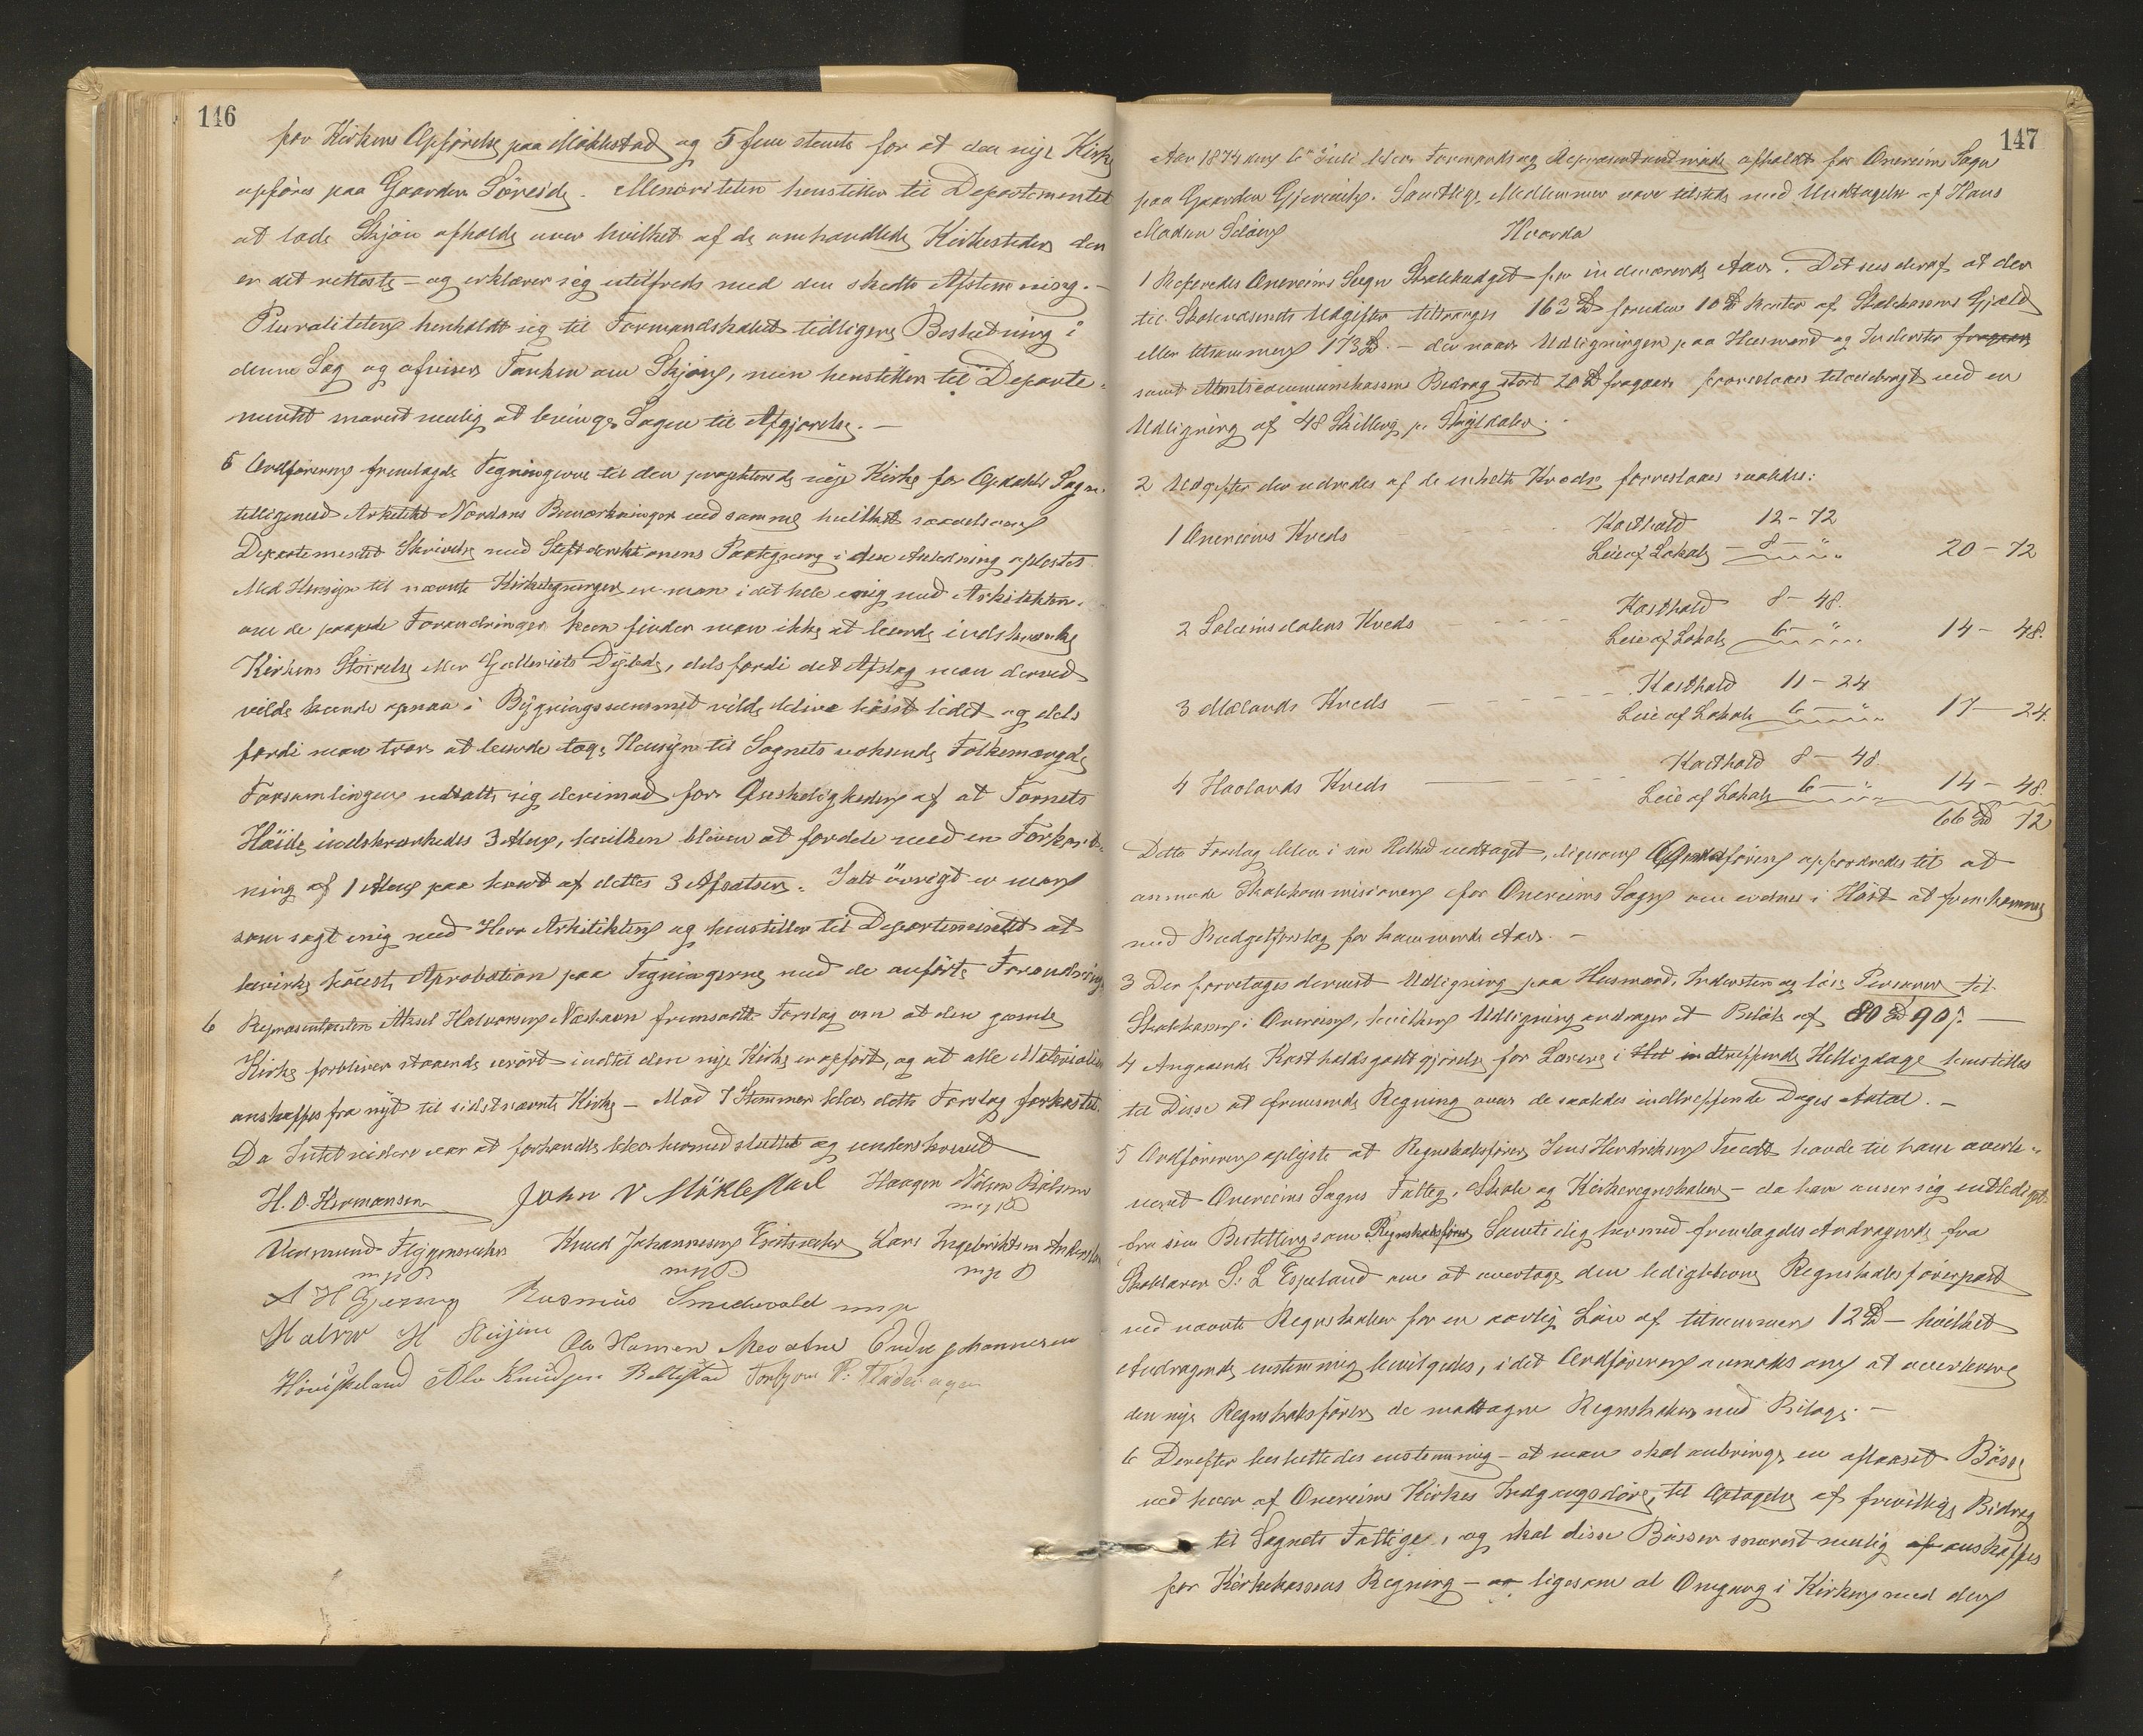 146
for Kirkens Opförelse paa Møklestad og 5 fem stemte for at den nye Kirke
opföres paa Gaarden Söreide. Minoriteten henstiller til Departementet
at lade Skjön afholde over hvilket af de omhandlede Kirkesteder der
er det retteste – og erklærer sig utilfreds med den skedte Afstemning. –
Pluraliteten henholdt sig til Formandskabets tidligere Beslutning i
denne Sag og afviser Tanken om Skjön, men henstiller til Departe-
mentet snarest mulig at bringe Sagen til Afgjørelse. –
5 Ordføreren fremlagde Tegningerne til den projekterede nye Kirke for Opdahls Sogn
tilligemed Arkitekt Nordans Bemærkninger ved samme hvilket saavelsom
Departementets Skrivelse med Stiftdirektionens Paategning i den Anledning oplæstes
Med Hensyn til nævnte Kirketegninger er man i det hele enig med Arkitekten
om de paapegte Forandringer kun finder man ikke at burde indskrænke
Kirkens Størrelse eller Galleriets Dybde, dels fordi det Afslag man derved
vilde kunde opnaa i Bygningssummen vilde blive höist lidet og dels
fordi man tror at burde tage Hensyn til Sognets voksende Folkemængde
Forsamlingen udtalte sig derimod for Ønskeligheden af at Taarnets
Høide indskrænkedes 3 Alen, hvilken bliver at fordele med en Forkort-
ning af 1 Alen paa hvert af dettes 3 Afsatser. I alt övrigt er man
som sagt enig med Herr Arkitekten og henstiller til Departementet at
bevirke höieste Aprobation paa Tegningerne med de anførte Forandringer
6 Repræsentanten Aksel Halvorsen Næshavn fremsatte Forslag om at den gamle
Kirke forbliver staaende urört indtil den nye Kirke er opført, og at alle Materialier
anskaffes fra nyt til sidstnævnte Kirke – Mod 7 Stemmer blev dette Forslag forkastet.
Da Intet videre var at forhandle blev hermed sluttet og underskrevet
H. O. Hermansen John V Möklestad Haagen Nilsen
m/p
Knud Johannesen Lars Ingebrigtsen
m/p m/p m/p
Rasmus Smedevold m/p
Halvor H
Ole Knudsen
147
Aar 1874 den 6te Juli blev Formands og Repræsentantmøde afholdt for Onereims Sogn
paa Gaarden Gjerevik. Samtlige Medlemmer vare tilstede med Undtagelse af Hans
Madsen Hvorda
1 Refereredes Onereims Sogn Skolebudget for indeværende Aar. Det sees deraf at der
til Skolevæsenets Udgifter tiltrænges 163 Spd foruden 10 Spd Renter af Skolekassens Gjæld
eller tilsammen 173 Spd. – der naar Udligningen paa Husmænd og Inderster fragaar
samt Amtscommunekassens Bidrag stort 20 Spd fragaar foreslaaes tilveiebragt ved en
Udligning af 48 Skilling pr Skylddaler.
2 Udgifter der udredes af de enkelte Kredse foreslaaes saaledes:
1 Onereims Kreds Kosthold 12 – 72
Leie af Lokale – 8 – " 20 – 72
2 Soleimsdalens Kreds Kosthold 8 – 48.
Leie af Lokale 6 – " 14 – 48.
3 Mælands Kreds Kosthold 11 – 24
Leie af Lokale 6 – " 17 – 24.
4 Haalands Kreds Kosthold 8 – 48.
Leie af Lokale 6 – " 14 – 48.
66 Spd 72
Dette Forslag blev i sin Helhed vedtaget, ligesom Ordføreren opfordredes til at
anmode Skolekommissionen for Onereims Sogn om endnu i Höst at fremkomme
med Budgetforslag for kommende Aar. –
3 Der foretages dernæst Udligning paa Husmænd, Inderster og løse Personer til
Skolekassen i Onereim, hvilken Udligning andrager et Beløb af 80 Spd 90 s. –
4 Angaaende Kostholdsgodtgjörelse for Lærere i indtræffende Helligdage henstilles
til Disse at fremsende Regning over de saaledes indtræffende Dages Antal. –
5 Ordføreren oplyste at Regnskabsfører Jens Hendriksen Tveedt havde til ham overle-
veret Onereims Sogns Fattig, Skole og Kirkeregnskaber – da han anser sig entlediget
fra sin Bestilling som Regnskabsfører Samtidig hermed fremlagdes Andragende fra
Skolelærer S. L Espeland om at overtage den ledigblevne Regnskabsførerpost
ved nævnte Regnskaber for en aarlig Løn af tilsammen 12 Spd – hvilket
Andragende enstemmig bevilgedes, idet Ordføreren anmodes om at overlevere
den nye Regnskabsfører de modtagne Regnskaber med Bilage. –
6 Derefter besluttedes enstemmig – at man skal anbringe en aflaaset Bösse
ved hver af Onereims Kirkes Indgangsdöre, til Optagelse af frivillige Bidrag
til Sognets Fattige, og skal disse Bösser snarest mulig af anskaffes
for Kirkekassens Regning – og ligesom al Omgang i Kirken med den